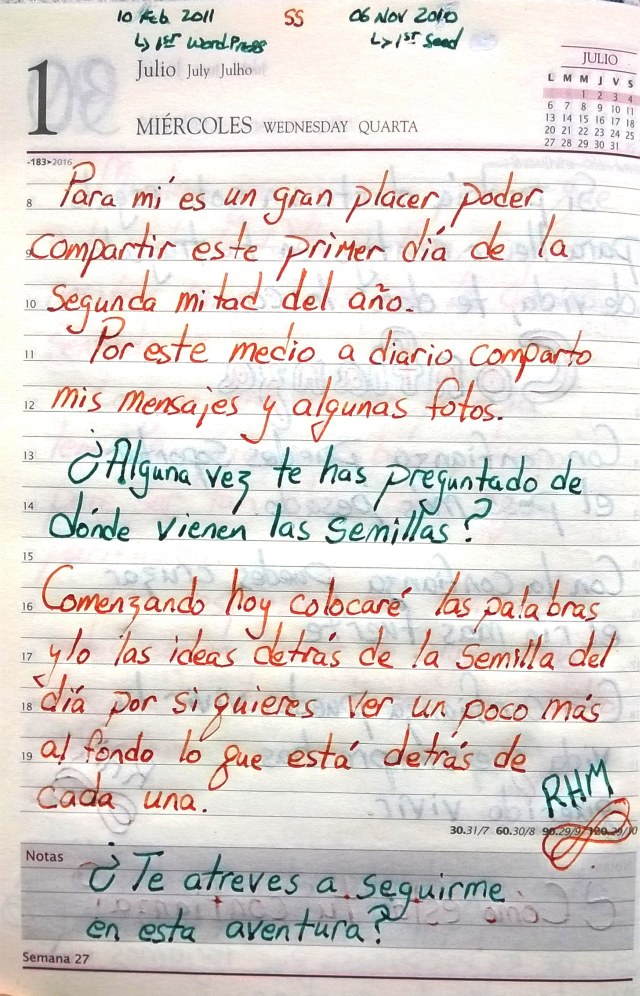 10 Feb 2011 SS 06 Nov 2010
↳ 1st WordPress ↳ 1st Seed
1 Julio July Julho
MIÉRCOLES WEDNESDAY QUARTA
JULIO
L M M J V S
1 2 3 4
6 7 8 9 10 11
13 14 15 16 17 18
20 21 22 23 24 25
27 28 29 30 31
-183▸2016
8 Para mí es un gran placer poder
9 compartir este primer día de la
10 segunda mitad del año.
11 Por este medio a diario comparto
12 mis mensajes y algunas fotos.
13 ¿Alguna vez te has preguntado de
14 dónde vienen las semillas?
15
16 Comenzando hoy colocaré las palabras
17 y/o las ideas detrás de la semilla del
18 día por si quieres ver un poco más
19 al fondo lo que está detrás de
cada una.
RHM
30.31/7 60.30/8 90.29/9 120.29/10
Notas
¿Te atreves a seguirme
en esta aventura?
Semana 27